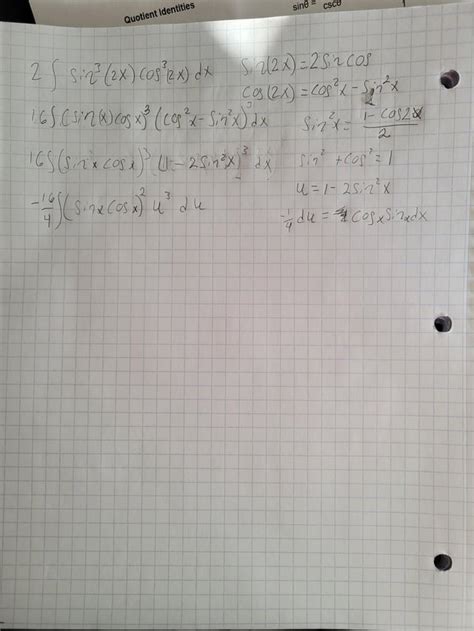 Quotient Identities
sinθ = cscθ
1
2 ∫ sin³(2x) cos³(2x) dx
sin(2x) = 2 sin cos
cos(2x) = cos²x - sin²x
16 ∫ (sin(x) cos x)³ (cos²x - sin²x)³ dx
sin²x = 1 - cos2x / 2
16 ∫ (sin x cos x)³ (1 - 2 sin²x)³ dx
sin² + cos² = 1
u = 1 - 2 sin²x
-16/4 ∫ (sin x cos x)² u³ du
-1/4 du = cos x sin x dx